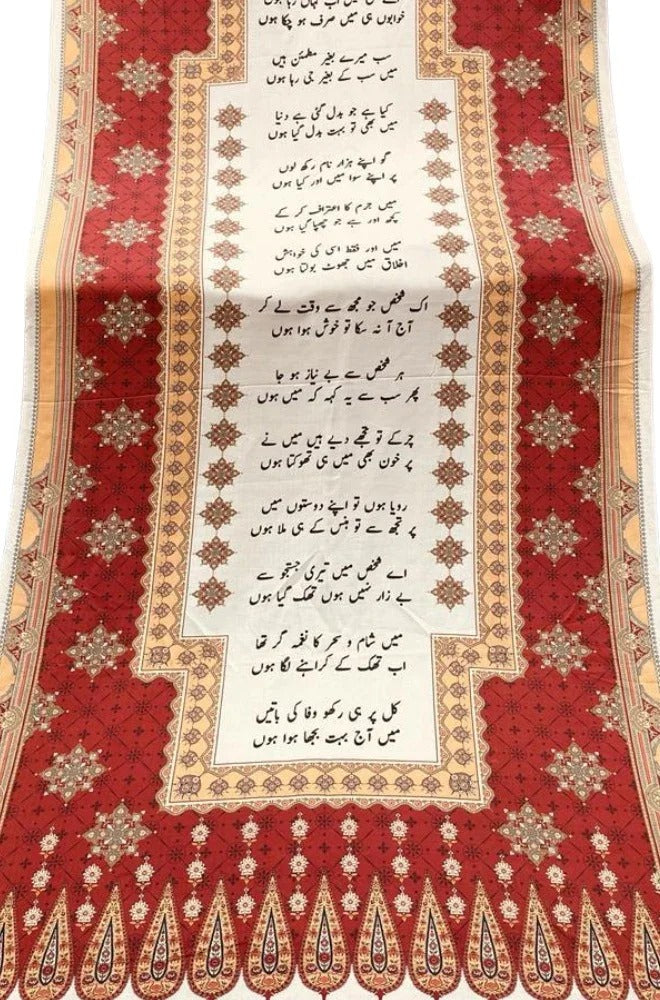 خوابوں ہی میں صرف ہو چکا ہوں
سب میرے بغیر مطمئن ہیں
میں سب کے بغیر جی رہا ہوں
کیا ہے جو بدل گئی ہے دنیا
میں بھی تو بہت بدل گیا ہوں
گو اپنے ہزار نام رکھ لوں
پر اپنے سوا میں اور کیا ہوں
میں جرم کا اعتراف کر کے
کچھ اور ہے جو چھپا گیا ہوں
میں اور فقط اسی کی خواہش
اخلاق میں جھوٹ بولتا ہوں
اک شخص جو مجھ سے وقت لے کر
آج آ نہ سکا تو خوش ہوا ہوں
ہر شخص سے بے نیاز ہو جا
پھر سب سے یہ کہہ کہ میں ہوں
چرکے تو تجھے دیے ہیں میں نے
پر خون بھی میں ہی تھوکتا ہوں
رویا ہوں تو اپنے دوستوں میں
پر تجھ سے تو ہنس کے ہی ملا ہوں
اے شخص میں تیری جستجو سے
بے زار نہیں ہوں تھک گیا ہوں
میں شام و سحر کا نغمہ گر تھا
اب تھک کے کراہنے لگا ہوں
کل پر ہی رکھو وفا کی باتیں
میں آج بہت بجھا ہوا ہوں